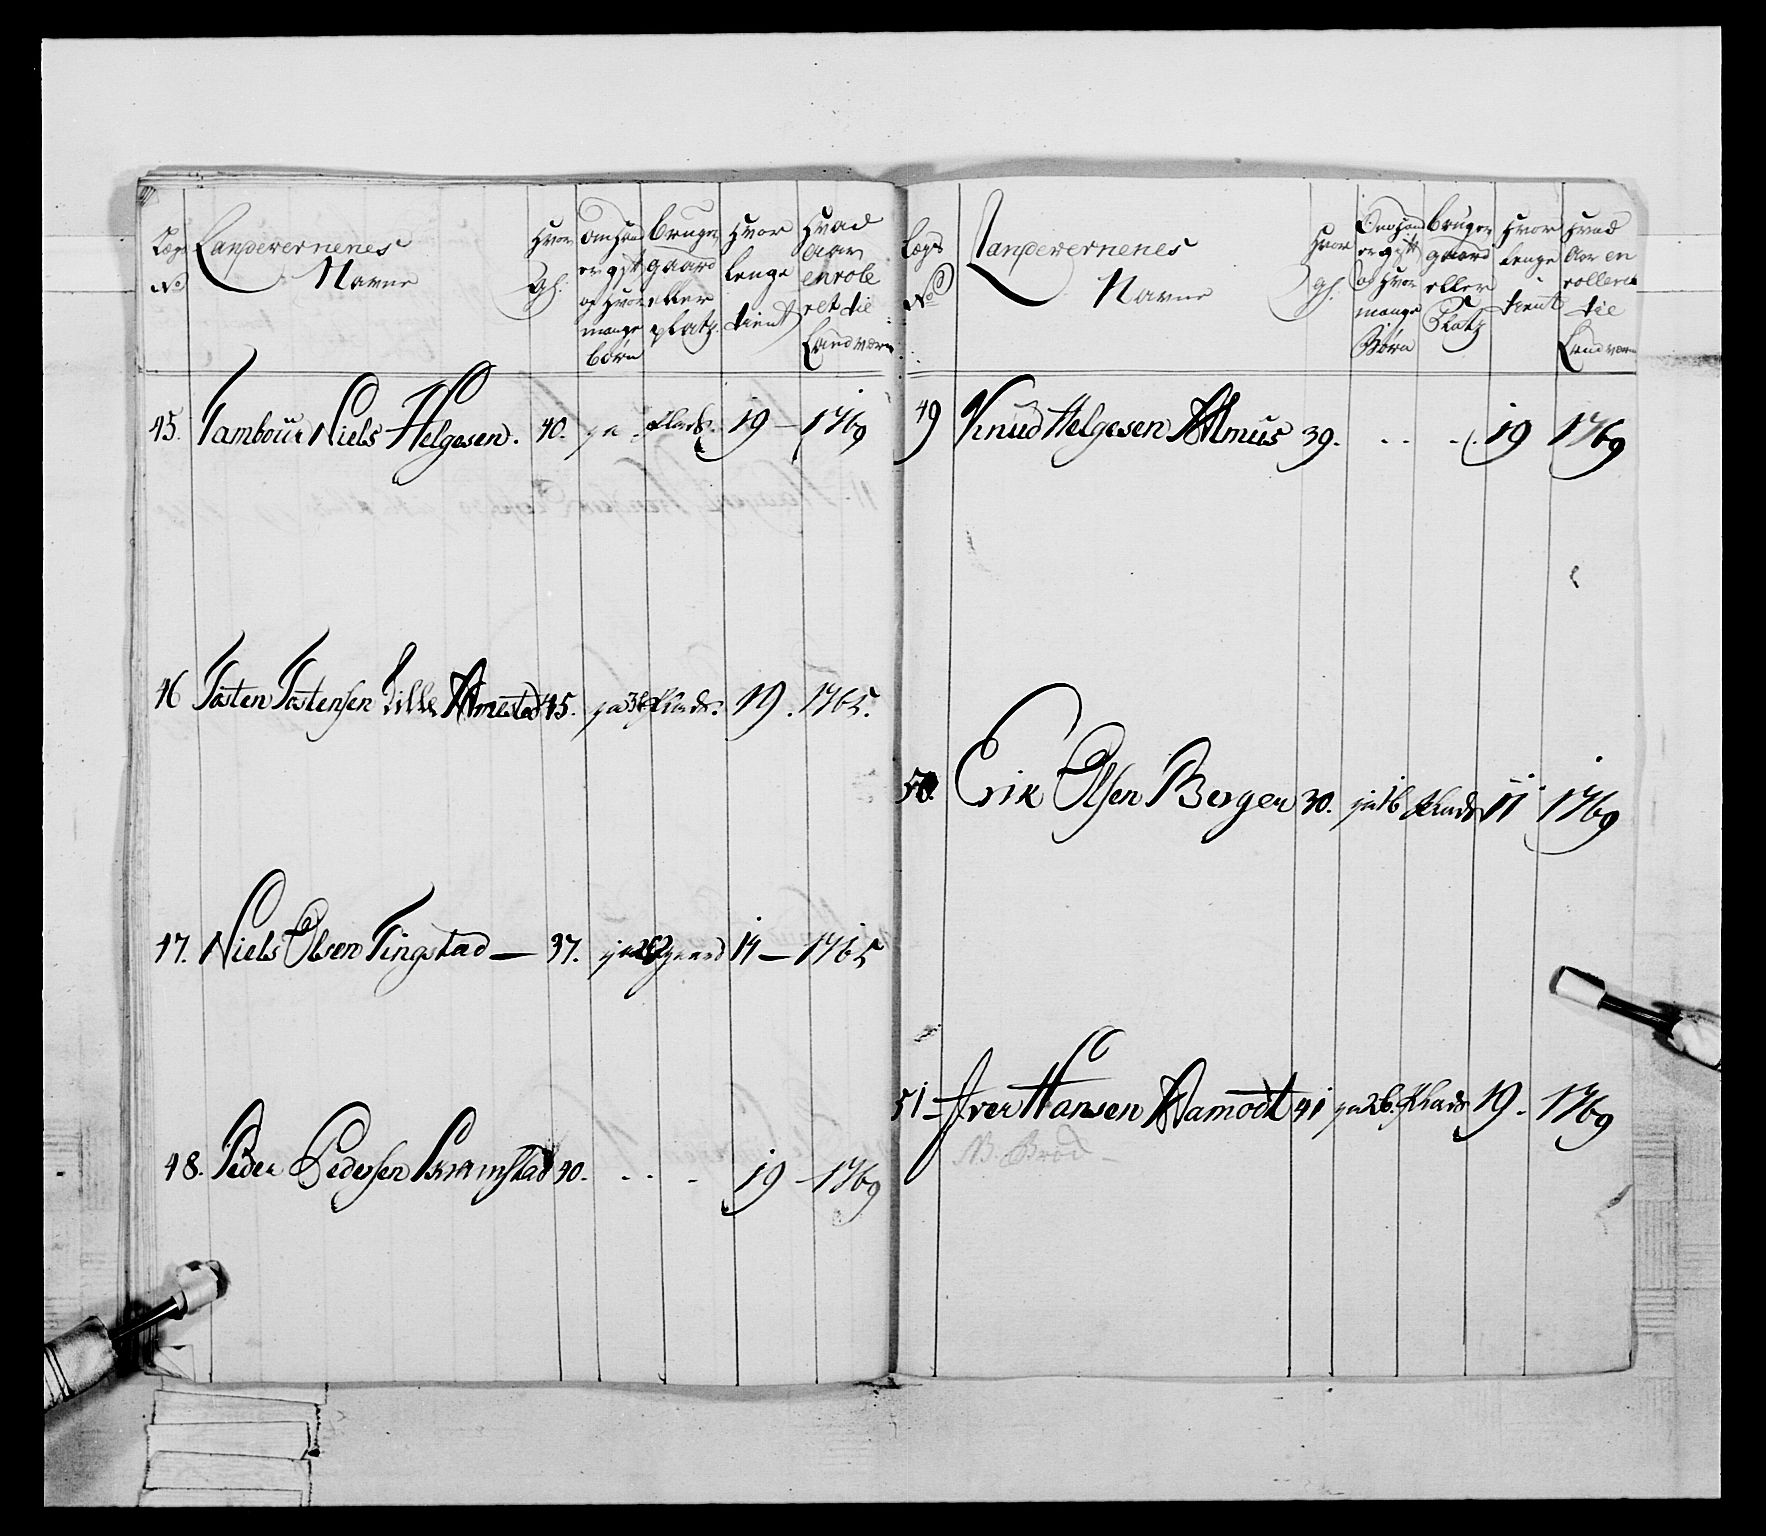 Lægs No
Landevernenes Navne
Hvor gl:
om hand er gift og hvor mange børn
bruger gaard eller platz.
Hvor lenge tient
Hvad Aar enrolleret til Landværn
45. Tambour Niels Helgesen. 40. ja - Plads. 19 - 1769
46 Tosten Tostensen Lille 45. ja 3b Plads. 19. 1765.
47. Niels Olsen Tingstad — 37. ja 2b gaard 14 — 1765
48. Peder Pedersen Kramstad 40. - - - 19 - 1769
Lægs No
Landevernenes Navne
Hvor gl.
Om hand er gift og hvor mange Børn
bruger gaard eller Platz
Hvor lenge tient
Hvad Aar enrolleret til Landværn
49 Knud Helgesen Almus 39. - - - 19 1769
50. Erik Olsen Bergen 30. ja 1b Plads 11 1769
51 - Iver Hansen Aamodt 41 ja 2b. Plads 19. 1769